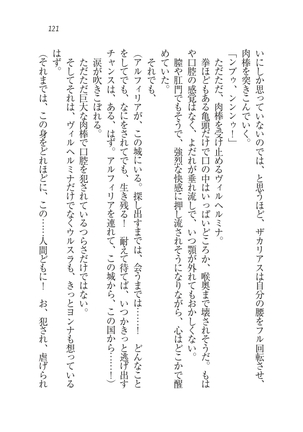 121
いにしか思っていないのでは、と思うほど、ザカリアスは自分の腰をフル回転させ、
肉棒を突きこんでいく。
「ンブゥ、ンンンゥ！」
ただただ、肉棒を受け止めるヴィルヘルミナ。
拳ほどもある亀頭だけで口の中はいっぱいどころか、喉奥まで壊されそうだ。もはや口腔の感覚はなく、よだれが垂れ流しで、いつ顎が外れてもおかしくない。
膣や肛門でもそうで、強烈な快感に押し流されそうになりながら、心はどこかで醒
それでも。
（アルフィリアが、この城にいる。探し出すまでは、会うまでは……！　どんなこと
をしても、なにをされてでも、生き残る！　耐えて待てば、いつかきっと逃げ出す
チャンスは、ある、はず。アルフィリアを連れて、この城から、この国から……！）
涙が吹きこぼれる。
ただただ巨大な肉棒で口腔を犯されているつらさだけではない。
そしてそれは、ヴィルヘルミナだけでなくウルスラも、きっとヨンナも想っている
はず。
（それまでは、この身をどれほどに、この……人間どもに！　お、犯され、虐げられ